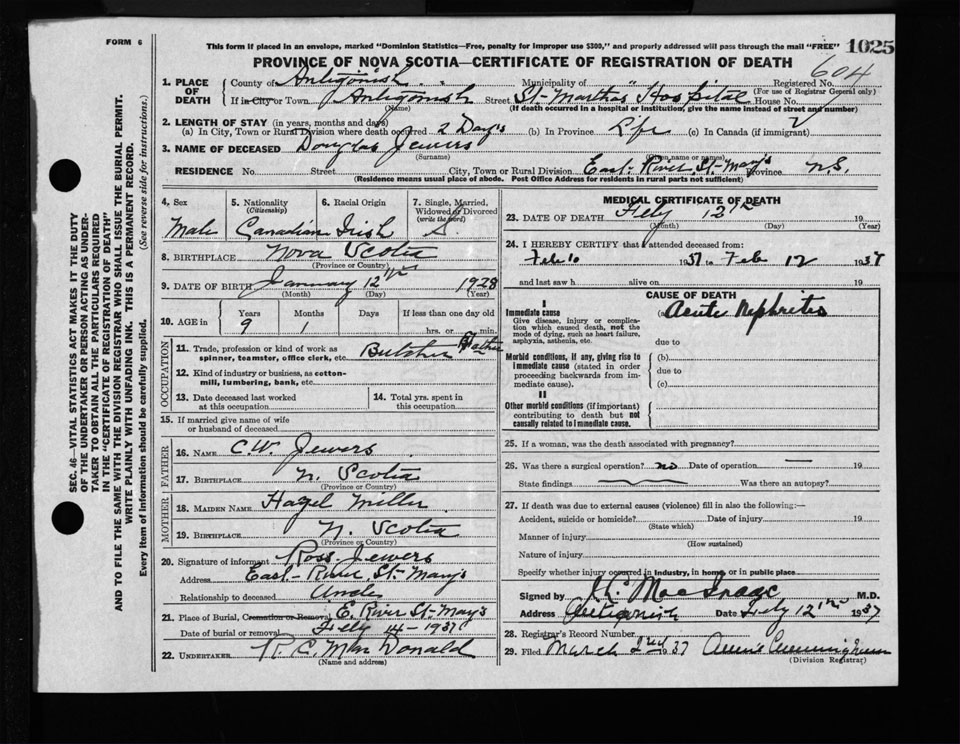 FORM 6
This form if placed in an envelope, marked "Dominion Statistics—Free, penalty for improper use $300," and properly addressed will pass through the mail "FREE" 1025
PROVINCE OF NOVA SCOTIA—CERTIFICATE OF REGISTRATION OF DEATH
604
1. PLACE OF DEATH
County of Antigonish Municipality of " Registered No.
(For use of Registrar General only)
If in City or Town Antigonish Street St. Martha's Hospital House No.
(Name) (If death occurred in a hospital or institution, give the name instead of street and number)
2. LENGTH OF STAY (in years, months and days)
(a) In City, Town or Rural Division where death occurred 2 Days (b) In Province Life (c) In Canada (if immigrant)
3. NAME OF DECEASED Douglas Jewers
(Surname) (Given name or names)
RESIDENCE No. Street City, Town or Rural Division East River St. Mary's Province N.S.
(Residence means usual place of abode. Post Office Address for residents in rural parts not sufficient)
4. Sex
Male
5. Nationality
(Citizenship)
Canadian
6. Racial Origin
Irish
7. Single, Married, Widowed or Divorced
(write the word)
S.
8. BIRTHPLACE Nova Scotia
(Province or Country)
9. DATE OF BIRTH January 12th 1928
(Month) (Day) (Year)
10. AGE in
Years Months Days If less than one day old
9 1 hrs. or min.
OCCUPATION
11. Trade, profession or kind of work as spinner, teamster, office clerk, etc. Butcher Father
12. Kind of industry or business, as cotton-mill, lumbering, bank, etc.
13. Date deceased last worked at this occupation
14. Total yrs. spent in this occupation
15. If married give name of wife or husband of deceased
FATHER
16. NAME C.W. Jewers
17. BIRTHPLACE N. Scotia
(Province or Country)
MOTHER
18. MAIDEN NAME Hazel Miller
19. BIRTHPLACE N. Scotia
(Province or Country)
20. Signature of informant Ross Jewers
Address East River St. Mary's
Relationship to deceased Uncle
21. Place of Burial, Cremation or Removal E. River St. Mary's
Date of burial or removal Feby 14 - 1937
22. UNDERTAKER R.C. MacDonald
(Name and address)
MEDICAL CERTIFICATE OF DEATH
23. DATE OF DEATH Feby 12th 19
(Month) (Day) (Year)
24. I HEREBY CERTIFY that I attended deceased from:
Feb 10 1937 to Feb 12 1937
and last saw h alive on 19
CAUSE OF DEATH
I
Immediate cause
Give disease, injury or complication which caused death, not the mode of dying, such as heart failure, asphyxia, asthenia, etc.
(a) Acute Nephritis
due to
Morbid conditions, if any, giving rise to immediate cause (stated in order proceeding backwards from immediate cause).
(b)
due to
(c)
II
Other morbid conditions (if important) contributing to death but not causally related to immediate cause.
25. If a woman, was the death associated with pregnancy?
26. Was there a surgical operation? no Date of operation — 19
State findings Was there an autopsy?
27. If death was due to external causes (violence) fill in also the following:—
Accident, suicide or homicide? Date of injury 19
(State which)
Manner of injury
(How sustained)
Nature of injury
Specify whether injury occurred in industry, in home, or in public place
Signed by MacIsaac M.D.
Address Antigonish Date Feby 12th 1937
28. Registrar's Record Number
29. Filed March 2nd 1937 Annie Cunningham
(Division Registrar)
SEC. 46—VITAL STATISTICS ACT MAKES IT THE DUTY
OF THE UNDERTAKER OR PERSON ACTING AS UNDER-
TAKER TO OBTAIN ALL THE PARTICULARS REQUIRED
IN THE "CERTIFICATE OF REGISTRATION OF DEATH"
AND TO FILE THE SAME WITH THE DIVISION REGISTRAR WHO SHALL ISSUE THE BURIAL PERMIT.
WRITE PLAINLY WITH UNFADING INK. THIS IS A PERMANENT RECORD.
Every item of information should be carefully supplied. (See reverse side for instructions.)